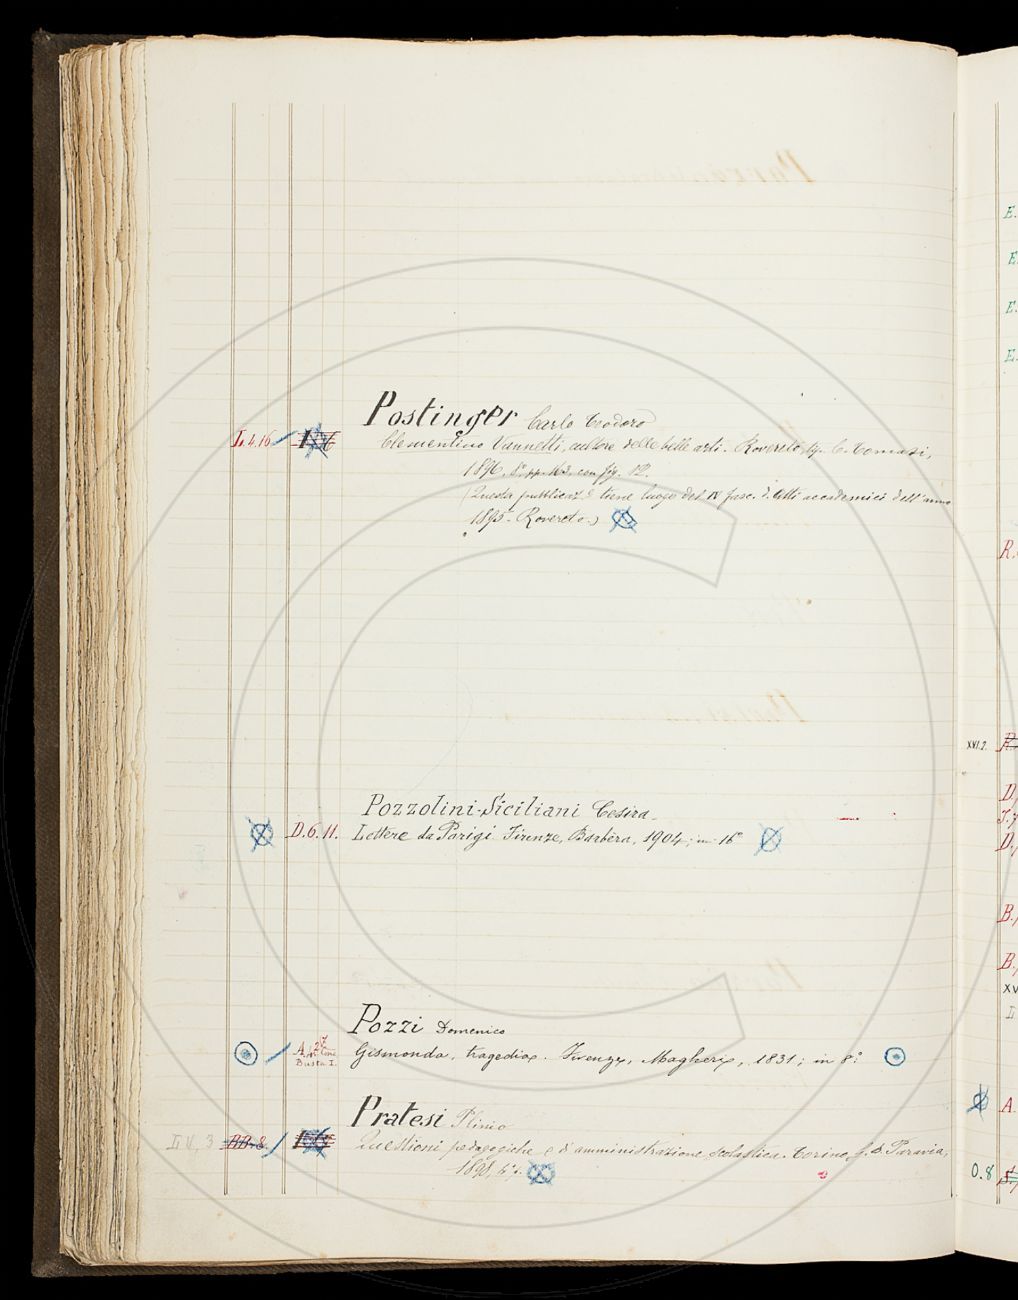 Postinger Carlo Teodoro
L.4.16
Clementino Vannetti, cultore delle belle arti. Rovereto, tip. C. Tomasi,
1896, 8° pp. 163, con fig. 12.
(Questa pubblicaz.e tiene luogo del IV fasc. d. Atti accademici dell'anno
1895. Rovereto.)
Pozzolini-Siciliani Cesira
D.6.11. Lettere da Parigi Firenze, Barbèra, 1904; in 16°
Pozzi Domenico
A.
Busta I.
Gismonda, tragedia. Firenze, Magheri, 1831; in 8°
Pratesi Plinio
BB.8
Questioni pedagogiche e d'amministrazione scolastica. Torino, G.B. Paravia,
E.
E.
E.
E.
R.
XVI.2.
D.
D.
B.
B.
XV
A.
O.8